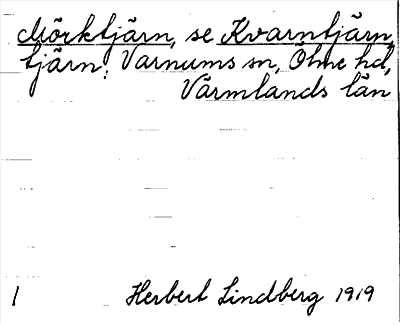 Mörktjärn, se Kvarntjärn,
tjärn; Varnums sn, Ölme hd,
Värmlands län
1 Herbert Lindberg 1919